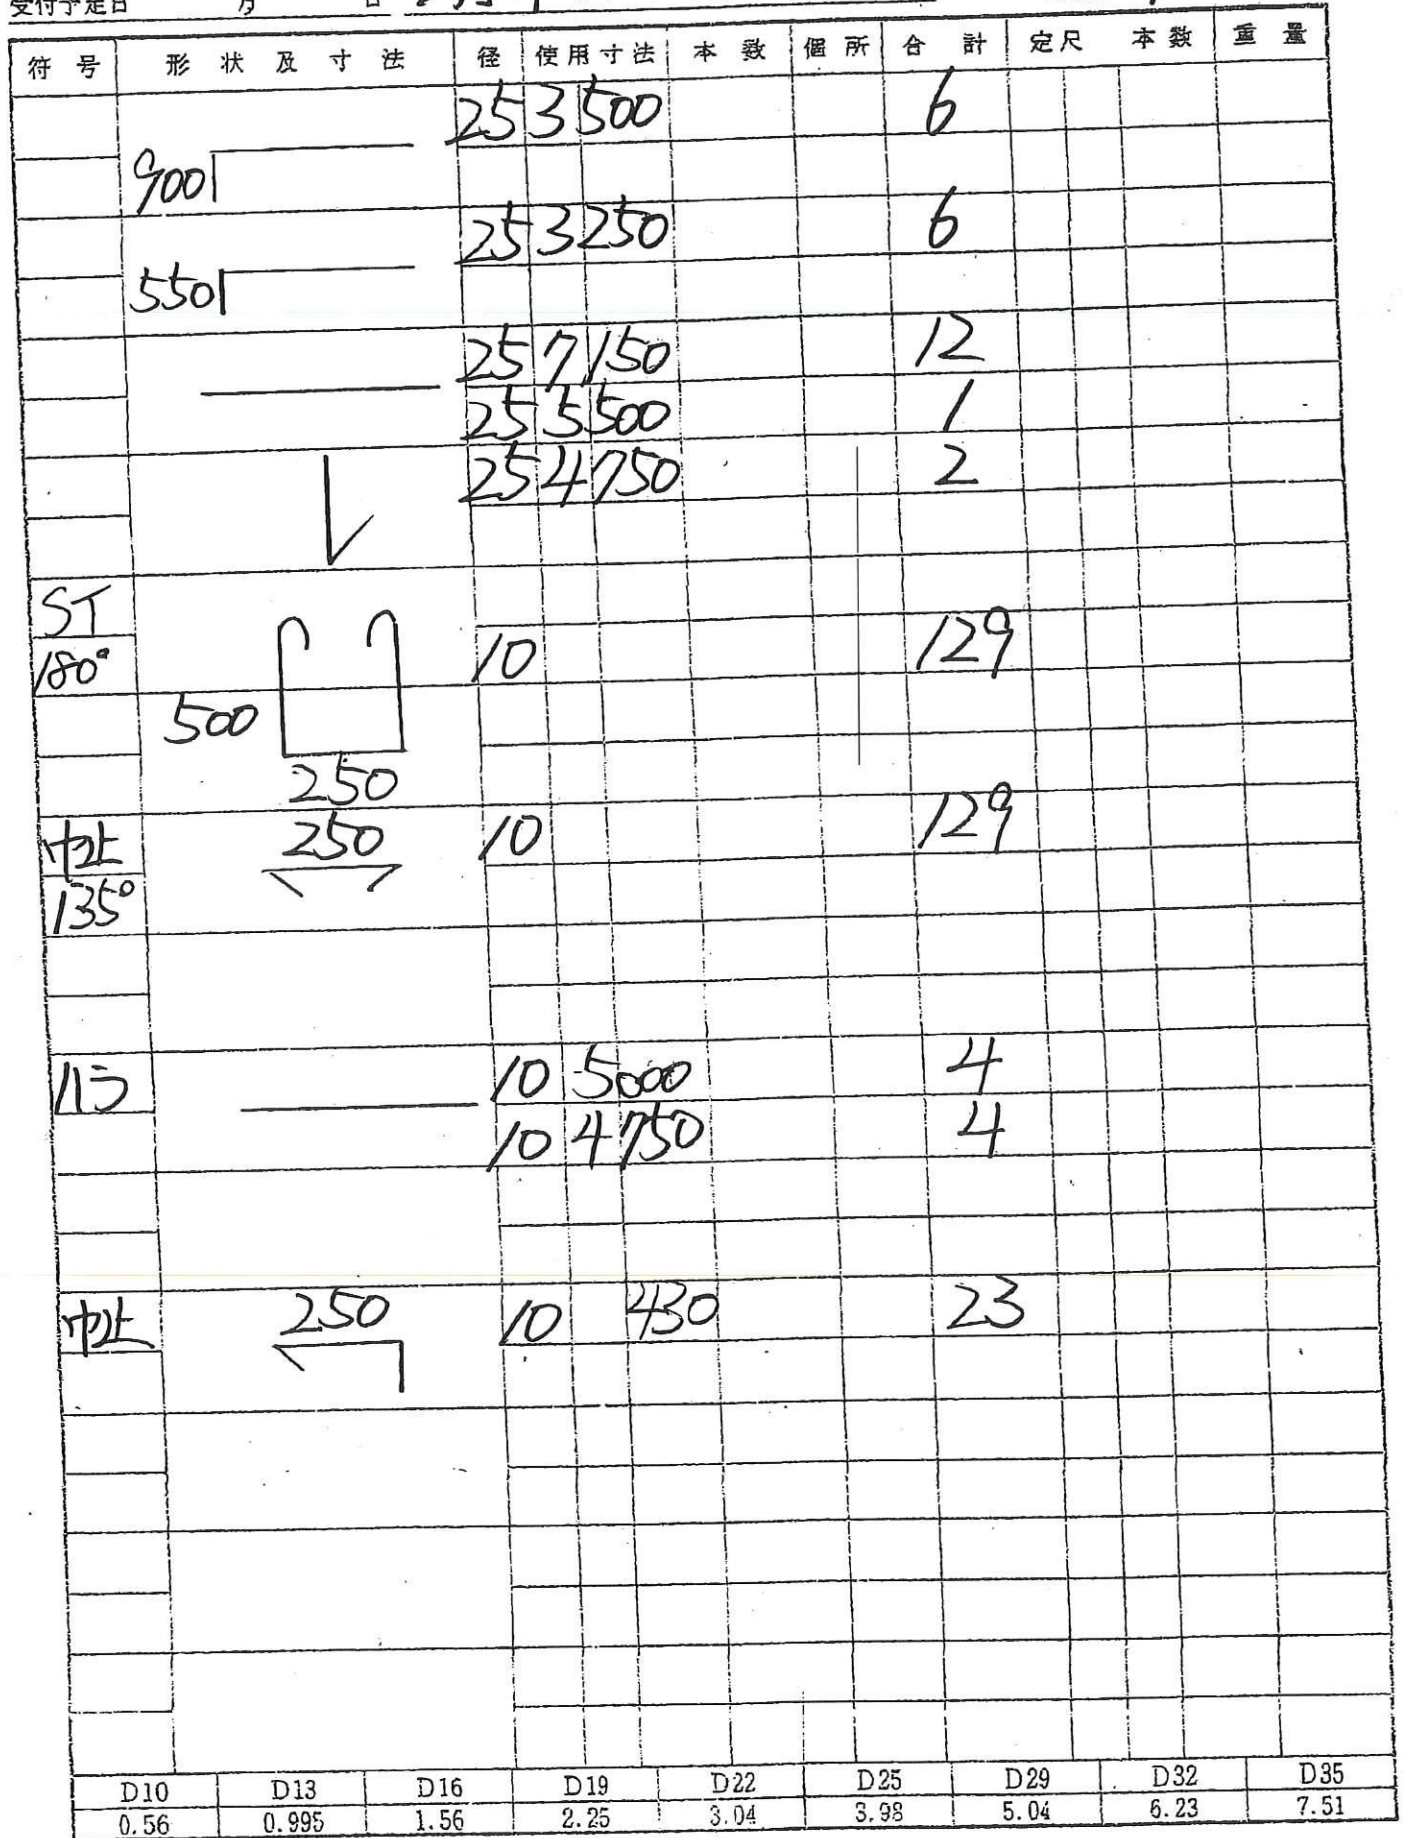 受付予定日 月 日
符号 形状及寸法 径 使用寸法 本数 個所 合計 定尺 本数 重量
25 3500 6
900
25 3250 6
550
25 7150 12
25 5500 1
25 4750 2
ST
180° 10 129
500
250
巾止 250 10 129
135°
ハラ 10 5000 4
10 4750 4
巾止 250 10 430 23
D10 D13 D16 D19 D22 D25 D29 D32 D35
0.56 0.995 1.56 2.25 3.04 3.98 5.04 6.23 7.51